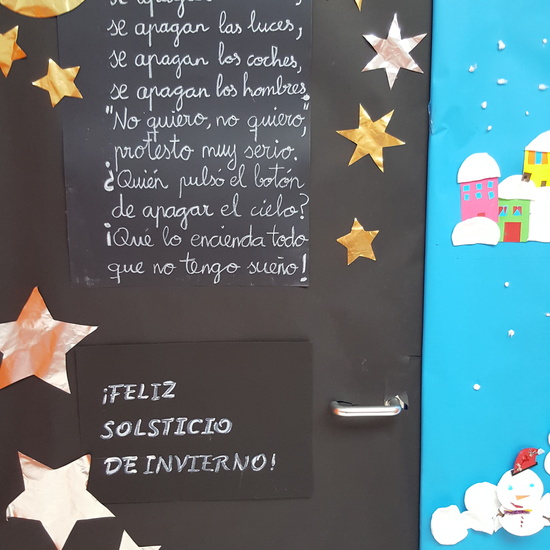 se apagan las luces,
se apagan los coches,
se apagan los hombres.
"No quiero, no quiero,"
protesto muy serio.
¿Quién pulsó el botón
de apagar el cielo?
¡Qué lo encienda todo
que no tengo sueño!
¡FELIZ
SOLSTICIO
DE INVIERNO!